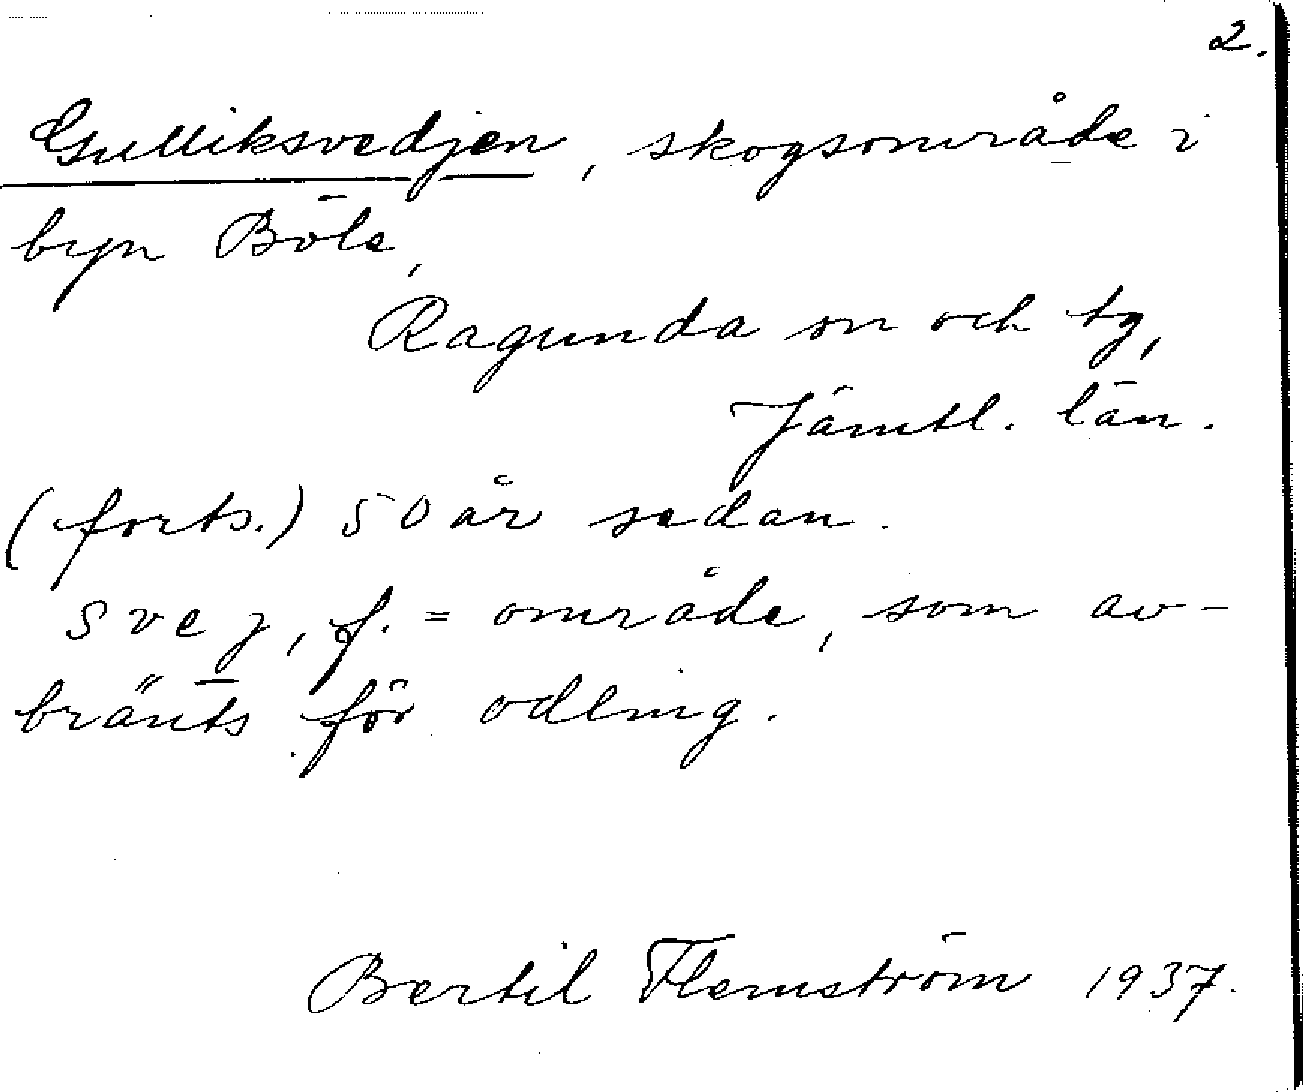 2.
Gulliksvedjen, skogsområde i
byn Böle,
Ragunda sn och tg,
Jämtl. län.
(forts.) 50 år sedan.
svej, f. = område, som av-
bränts för odling.
Bertil Flemström 1937.